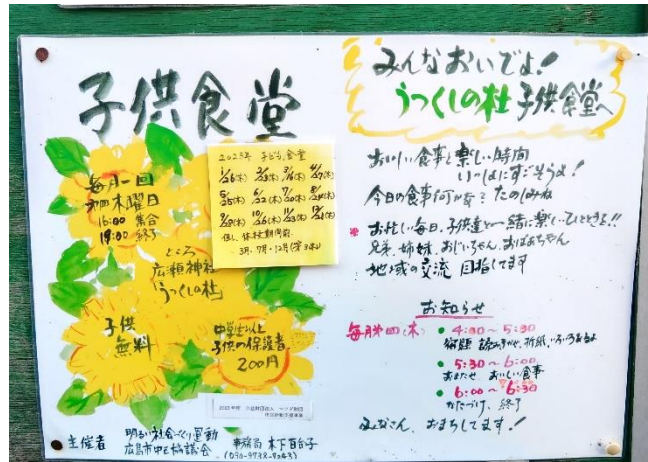 子供食堂
毎月一回
第四木曜日
16:00 集合
19:00 終了
2023年 子ども食堂
1/26(木) 2/23(木) 3/16(木) 4/27(木)
5/25(木) 6/22(木) 7/20(木) 8/24(木)
9/28(木) 10/26(木) 11/23(木) 12/21(木)
但し、休校期間前
3月・7月・12月(第3木)
ところ
広瀬神社
うつくしの杜
子供
無料
中学生以上
子供の保護者
200円
主催者 明るい社会づくり運動
広島市中区協議会
事務局 木下百合子
みんなおいでよ!
うつくしの杜 子供食堂へ
おいしい食事と楽しい時間
いっしょにすごそうよ!
今日の食事何かな? たのしみね
* お忙しい毎日、子供達と一緒に楽しいひととき!!
兄弟、姉妹、おじいちゃん、おばあちゃん
地域の交流 目指してます
お知らせ
毎月第四(木) ・4:30~5:30
宿題 読みきかせ、折紙、いろいろあるよ
・5:30~6:00
おまたせ、おいしい食事
・6:00~6:30
かたづけ、終了
みなさん、おまちしてます!